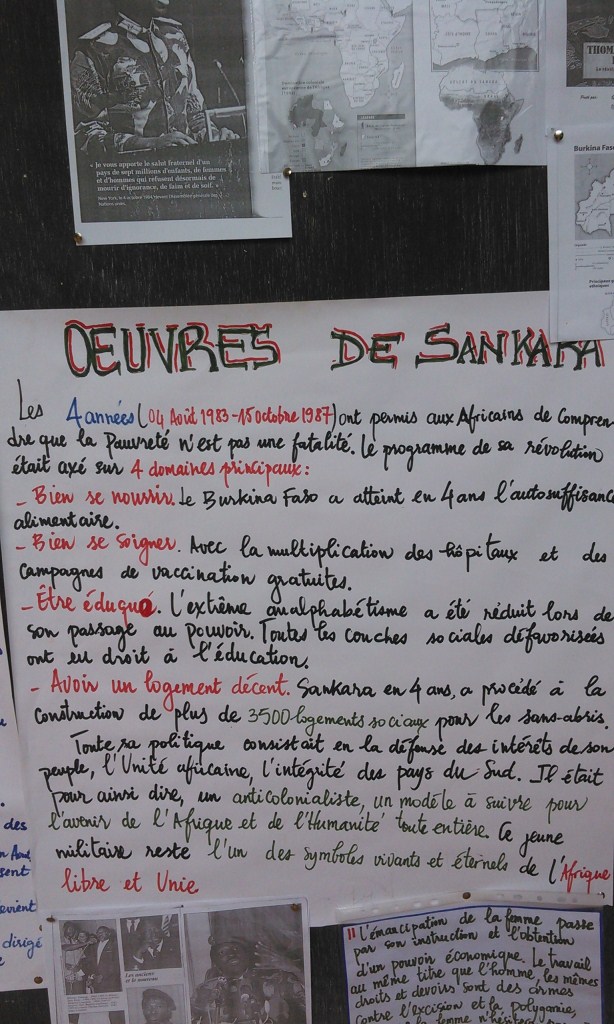 « Je vous apporte le salut fraternel d'un
pays de sept millions d'enfants, de femmes
et d'hommes qui refusent désormais de
mourir d'ignorance, de faim et de soif. »
THOM
Burkina Fas
OEUVRES DE SANKARA
Les 4 années (04 Août 1983-15 octobre 1987) ont permis aux Africains de Compren
dre que la Pauvreté n'est pas une fatalité. Le programme de sa révolution
était axé sur 4 domaines principaux :
- Bien se nourrir. Le Burkina Faso a atteint en 4 ans l'autosuffisance
alimentaire.
- Bien se Soigner. Avec la multiplication des hôpitaux et des
campagnes de vaccination gratuites.
- Être éduqué. L'extrême analphabétisme a été réduit lors de
son passage au pouvoir. Toutes les couches sociales défavorisées
ont eu droit à l'éducation.
- Avoir un logement décent. Sankara en 4 ans, a procédé à la
construction de plus de 3500 logements sociaux pour les sans-abris.
Toute sa politique consistait en la défense des intérêts de son
peuple, l'Unité africaine, l'intégrité des pays du Sud. Il était
pour ainsi dire, un anticolonialiste, un modèle à suivre pour
l'avenir de l'Afrique et de l'Humanité toute entière. Ce jeune
militaire reste l'un des symboles vivants et éternels de l'Afrique
libre et Unie
des
sent
dirigé
Les anciens
et le nouveau
" L'émancipation de la femme passe
par son instruction et l'obtention
d'un pouvoir économique. Le travail
au même titre que l'homme, les mêmes
droits et devoirs sont des armes
contre l'excision et la polygamie,
la femme n'hésitera